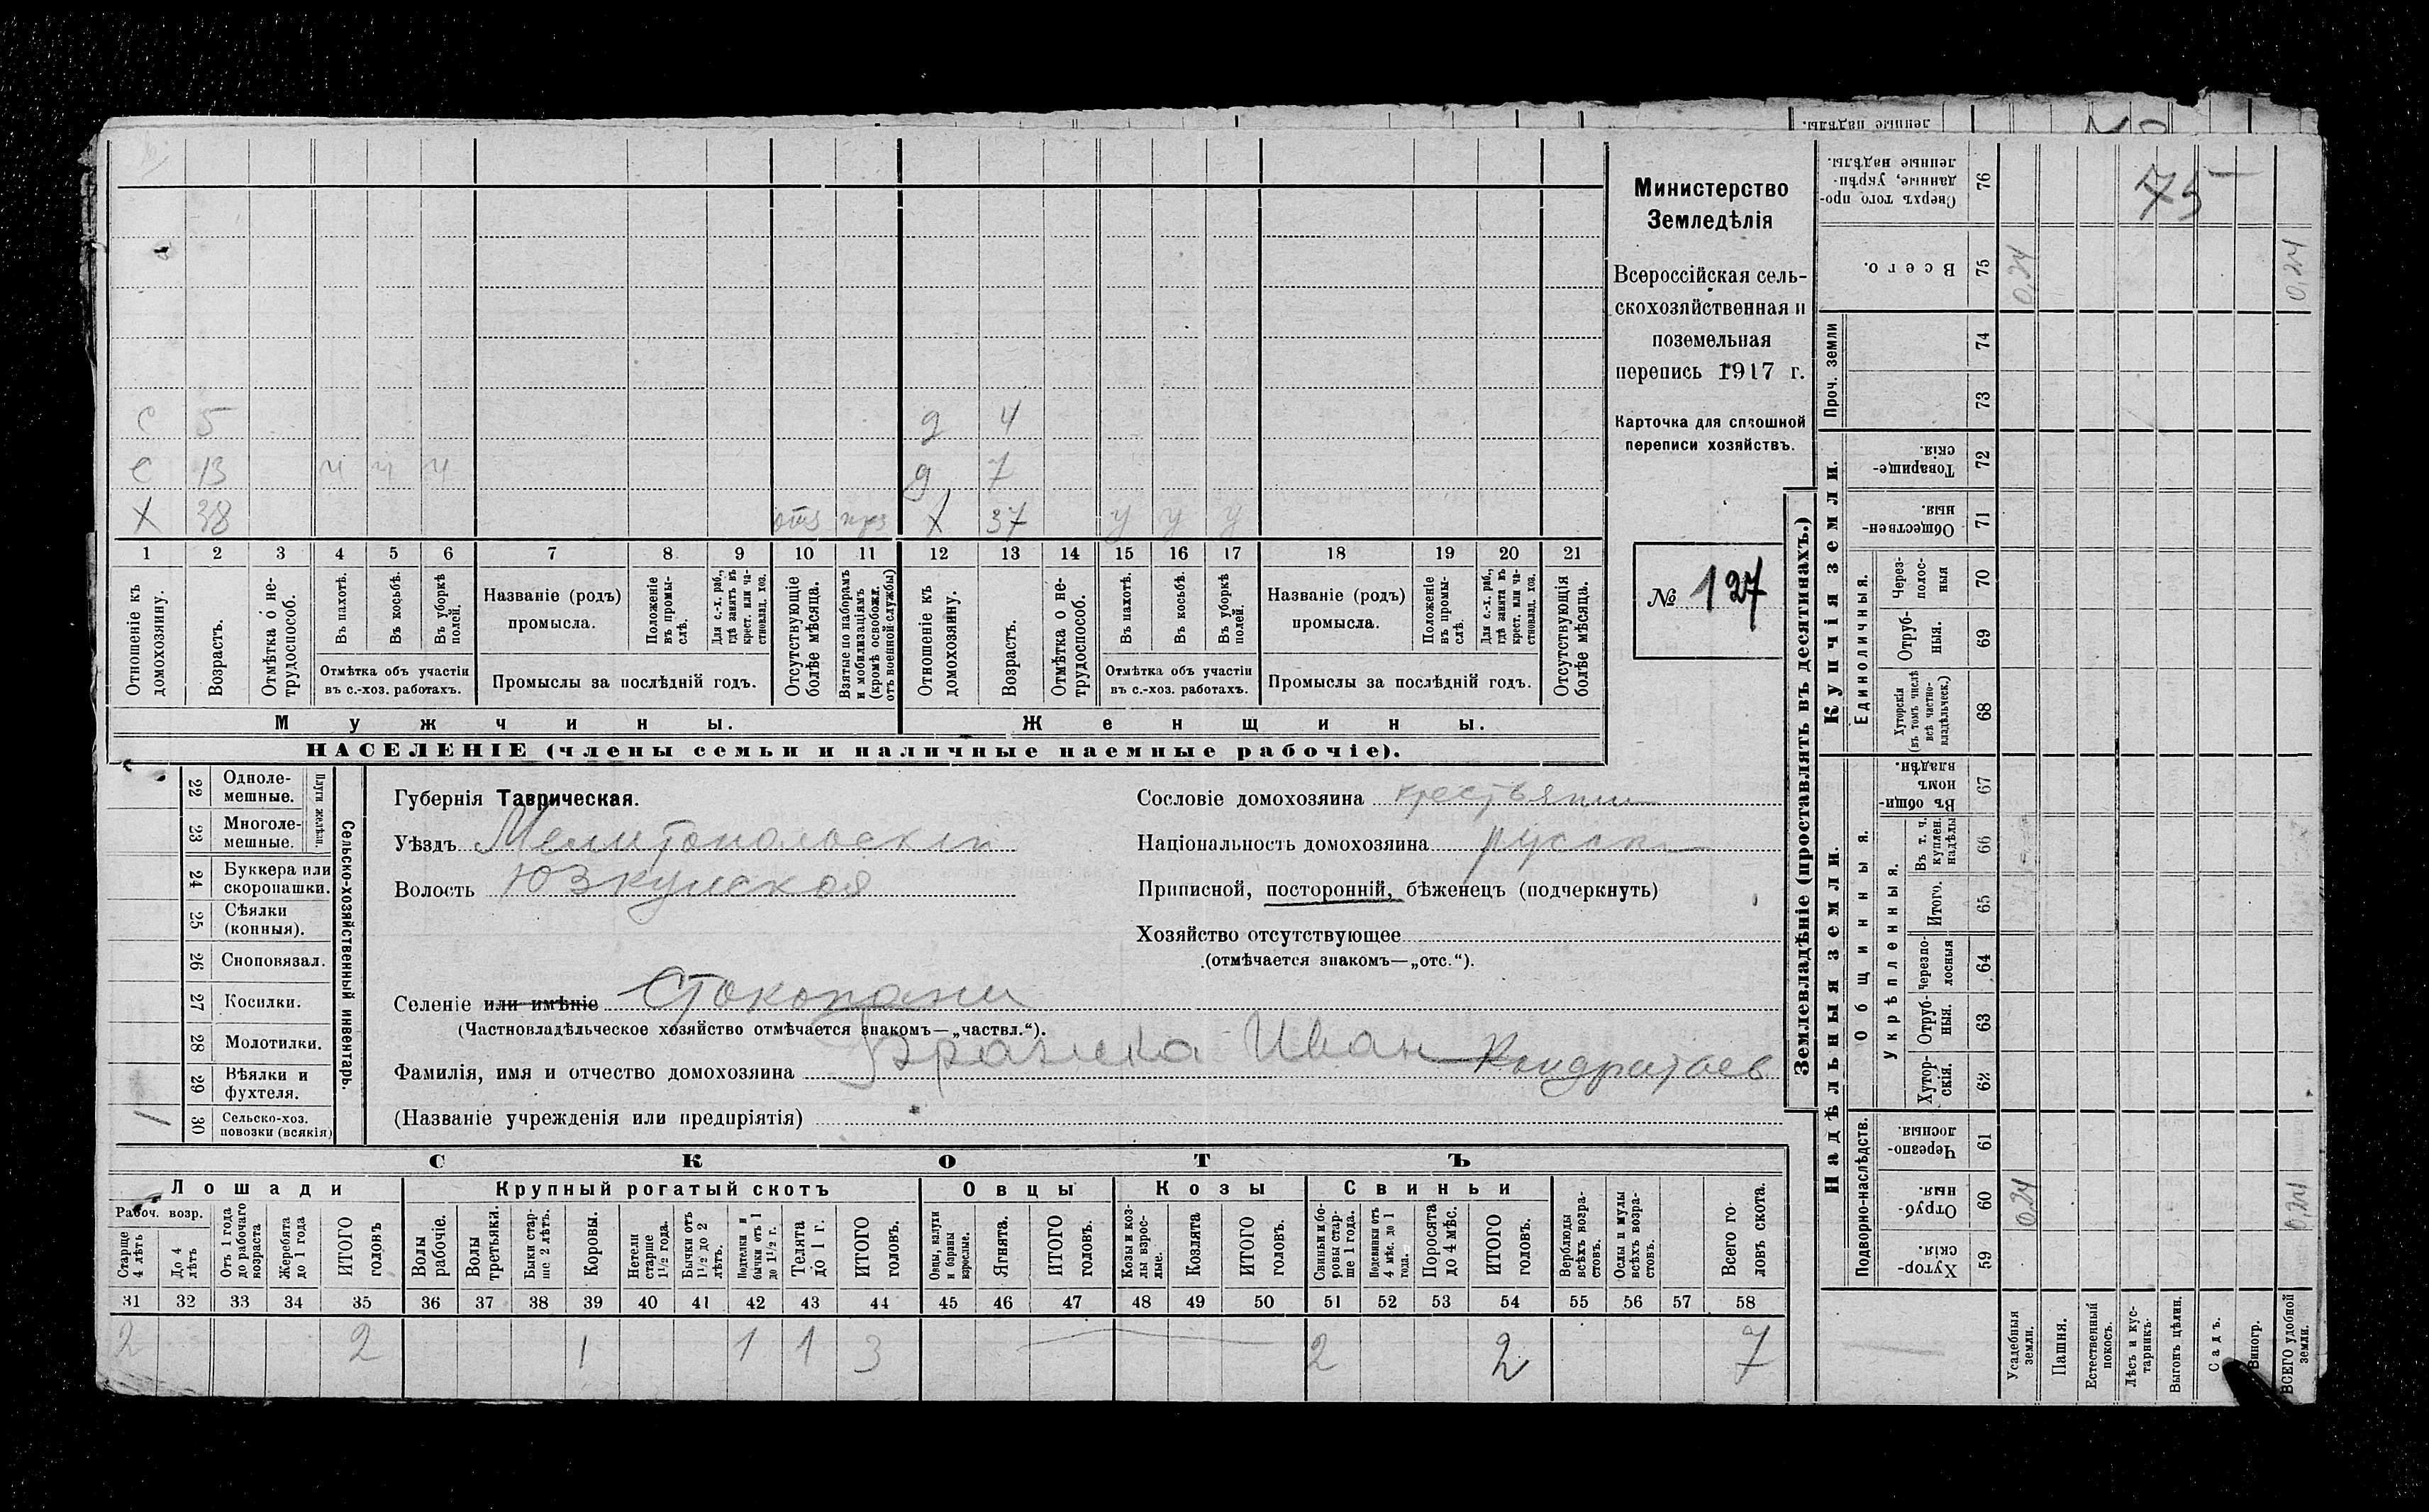 ленные надѣлы.
Министерство
Земледѣлія
Всероссійская сель-
скохозяйственная и
поземельная
перепись 1917 г.
Карточка для сплошной
переписи хозяйствъ.
№ 127
с 5 д 4
с 13 ч ч ч д 7
X 38 отз X 37 у у у
1 2 3 4 5 6 7 8 9 10 11 12 13 14 15 16 17 18 19 20 21
Отношеніе къ домохозяину.
Возрастъ.
Отмѣтка о не-трудоспособ.
Въ пахотѣ.
Въ косьбѣ.
Въ уборкѣ полей.
Отмѣтка объ участіи
въ с.-хоз. работахъ.
Названіе (родъ)
промысла.
Положеніе въ промы-слѣ.
Для с.-х. раб., гдѣ занятъ въ крест. или ча-стновлад. хоз.
Промыслы за послѣдній годъ.
Отсутствующіе болѣе мѣсяца.
Взятые по наборамъ и мобилизаціямъ (кромѣ освобожд. отъ военной службы)
Отношеніе къ домохозяину.
Возрастъ.
Отмѣтка о не-трудоспособ.
Въ пахотѣ.
Въ косьбѣ.
Въ уборкѣ полей.
Отмѣтка объ участіи
въ с.-хоз. работахъ.
Названіе (родъ)
промысла.
Положеніе въ промы-слѣ.
Для с.-х. раб., гдѣ занята въ крест. или ча-стновлад. хоз.
Промыслы за послѣдній годъ.
Отсутствующія болѣе мѣсяца.
Мужчины. Женщины.
НАСЕЛЕНІЕ (члены семьи и наличные наемные рабочіе).
Сельско-хозяйственный инвентарь.
Плуги желѣзн.
22 Одноле-
мешные.
23 Многоле-
мешные.
24 Буккера или
скоропашки.
25 Сѣялки
(конныя).
26 Сноповязал.
27 Косилки.
28 Молотилки.
29 Вѣялки и
фухтеля.
30 Сельско-хоз.
повозки (всякія)
1
Губернія Таврическая.
Уѣздъ Мелитопольскій
Волость Юзкуйская
Селеніе или имѣніе Стокопани
(Частновладѣльческое хозяйство отмѣчается знакомъ—„частвл.“).
Фамилія, имя и отчество домохозяина Иван Кондратьев
(Названіе учрежденія или предпріятія)
Сословіе домохозяина крестьянин
Національность домохозяина русски
Приписной, посторонній, бѣженецъ (подчеркнуть)
Хозяйство отсутствующее
(отмѣчается знакомъ—„отс.“).
СКОТЪ
Лошади Крупный рогатый скотъ Овцы Козы Свиньи
Рабоч. возр.
Старше 4 лѣтъ
До 4 лѣтъ
Отъ 1 года до рабочаго возраста
Жеребята до 1 года
ИТОГО головъ
Волы рабочіе.
Волы третьяки.
Быки стар-ше 2 лѣтъ.
Коровы.
Нетели старше 1 1/2 года.
Бычки отъ 1 1/2 до 2 лѣтъ.
Подтелки и бычки отъ 1 до 1 1/2 г.
Телята до 1 г.
ИТОГО головъ.
Овцы, валухи и бараны взрослые.
Ягнята.
ИТОГО головъ.
Козы и коз-лы взрос-лые.
Козлята
ИТОГО головъ.
Свиньи и бо-ровы стар-ше 1 года.
Подсвинки отъ 4 мѣс. до 1 года.
Поросята до 4 мѣс.
ИТОГО головъ.
Верблюды всѣхъ возра-стовъ.
Ослы и мулы всѣхъ возра-стовъ.
Всего го-ловъ скота.
31 32 33 34 35 36 37 38 39 40 41 42 43 44 45 46 47 48 49 50 51 52 53 54 55 56 57 58
2 2 1 1 1 3 2 2 7
Землевладѣніе (проставлять въ десятинахъ.)
Надѣльныя земли. Купчія земли. Проч. земли
Подворно-наслѣдств.
Общинныя.
Укрѣпленныя.
Единоличныя.
59 Хутор-скія.
60 Отруб-ныя.
61 Черезпо-лосныя.
62 Хутор-скія.
63 Отруб-ныя.
64 Черезпо-лосныя
65 Итого.
66 Въ т. ч. куплен. надѣлы
67 Въ общин-номъ владѣн.
68 Хуторскія (въ томъ числѣ всѣ частно-владѣльческ.)
69 Отруб-ныя.
70 Через-полос-ныя
71 Обществен-ныя.
72 Товарище-скія.
73
74
75 Всего.
76 Сверхъ того, про-данные, укрѣп-ленные надѣлы.
75
0,24 0,24
0,24 0,24
Усадебныя земли.
Пашня.
Естественный покосъ.
Лѣсъ и кус-тарникъ.
Выгонъ цѣлин.
Садъ.
Виногр.
ВСЕГО удобной земли.